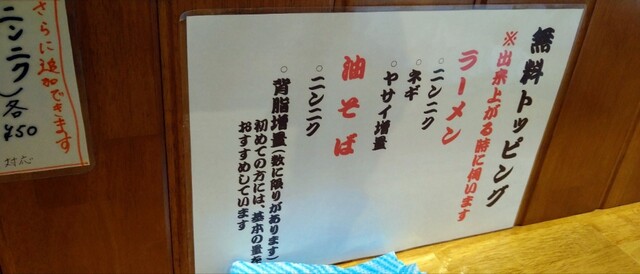 無料トッピング
※出来上がる時に伺います
ラーメン
○ニンニク
○ネギ
○ヤサイ増量
油そば
○ニンニク
○背脂増量(数に限りがあります)
初めての方には、基本の量を
おすすめしています
さらに追加できます
ニンニク)各
¥50